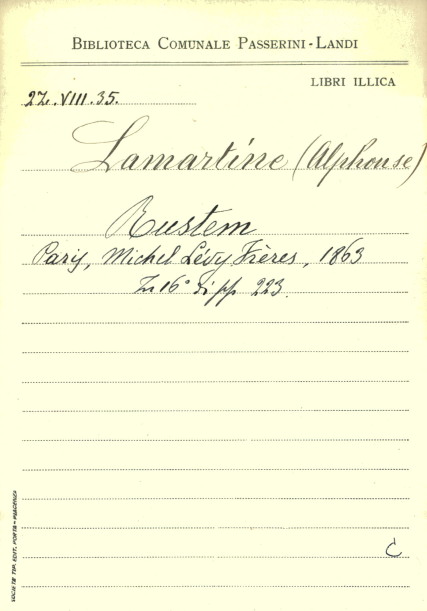 BIBLIOTECA COMUNALE PASSERINI-LANDI
LIBRI ILLICA
27.VIII.35.
Lamartine (Alphonse)
Rustem
Paris, Michel Lévy Frères, 1863
In 16° di pp 223.
C